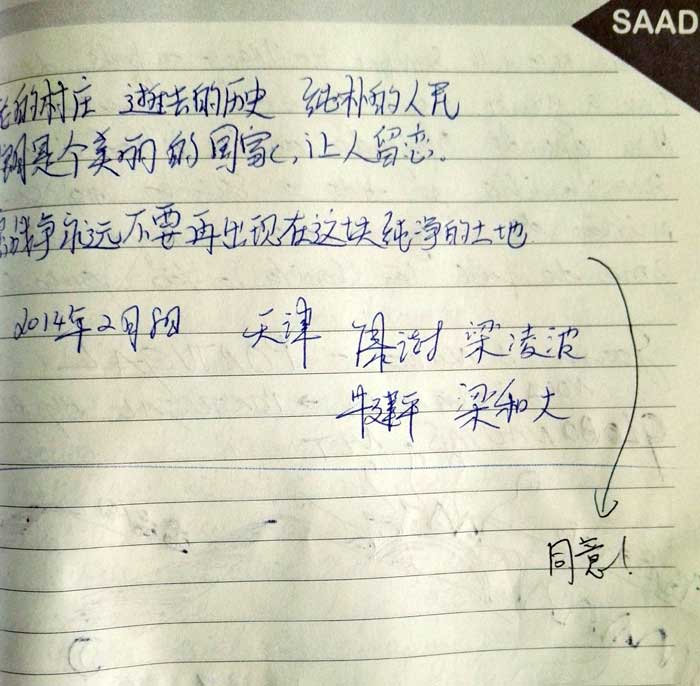 SAAD
的村庄 逝去的历史 纯朴的人民
是个美丽的国家,让人留恋。
战争永远不要再出现在这块纯净的土地
2014年2月8日 天津 周谢 梁凌波
梁和大
同意!